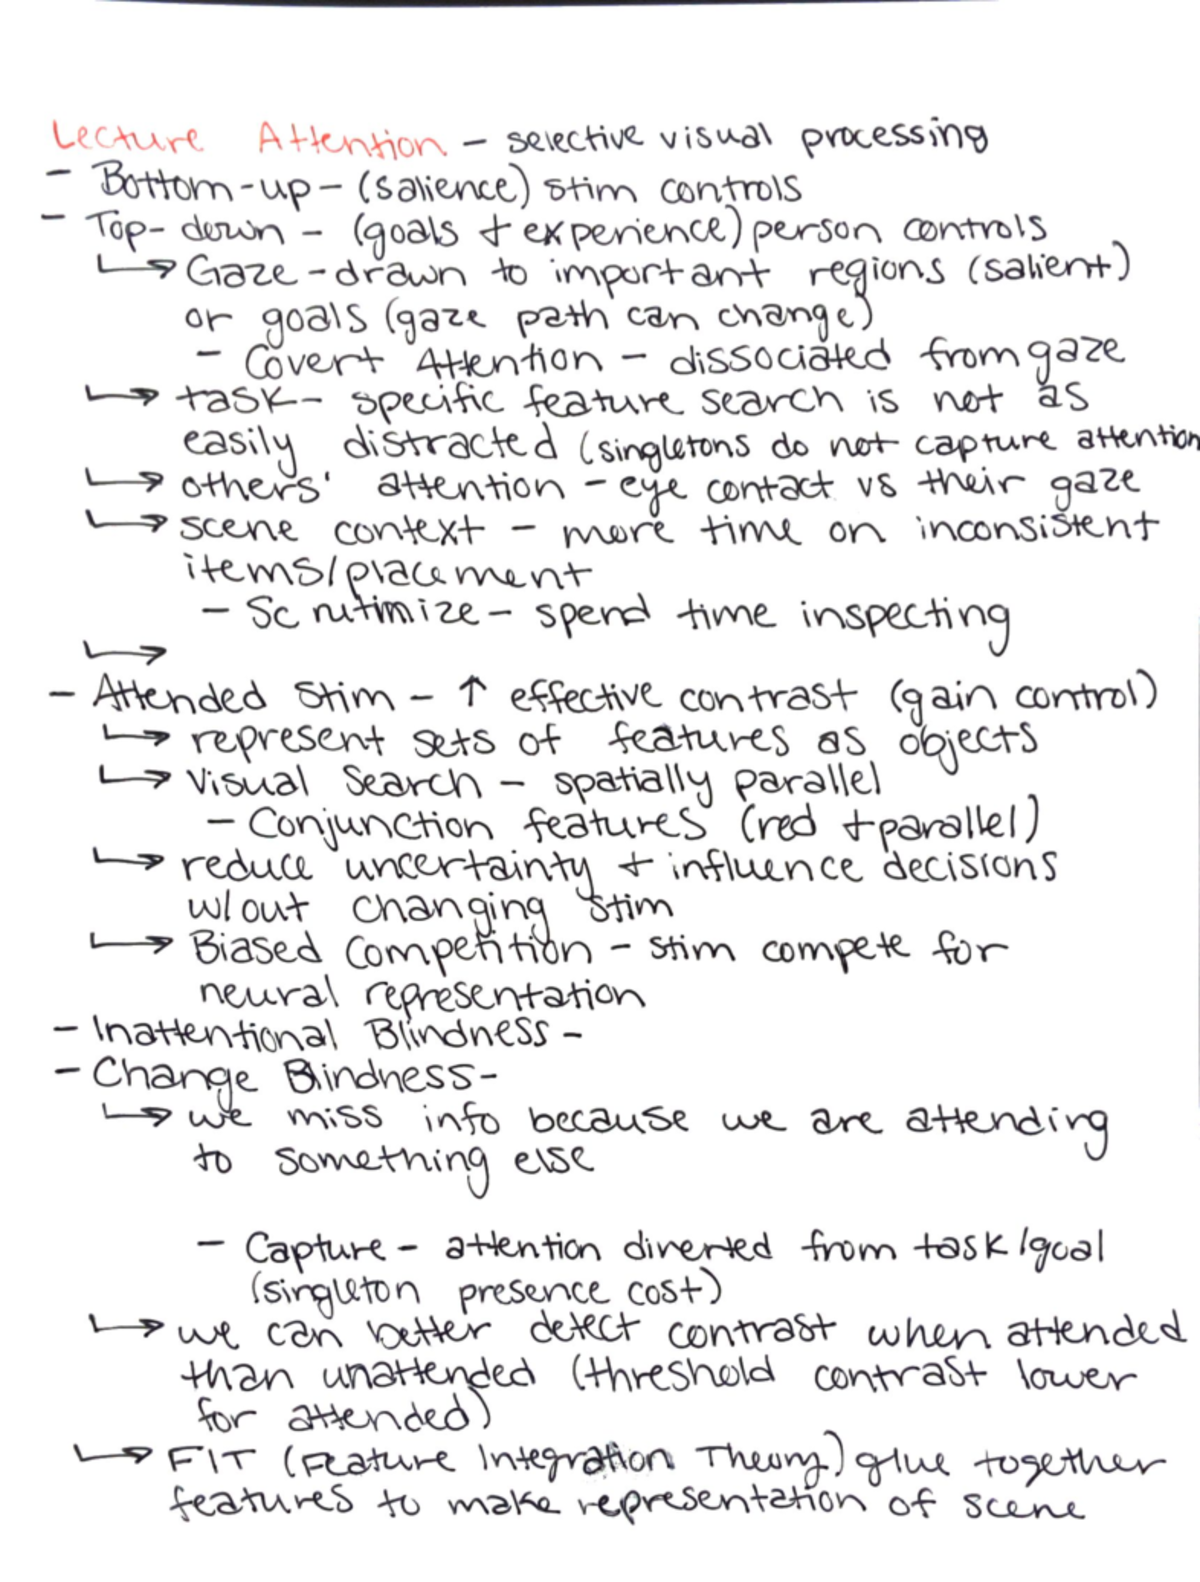 Lecture Attention - selective visual processing
- Bottom-up - (salience) stim controls
- Top-down - (goals + experience) person controls
↳ Gaze - drawn to important regions (salient)
or goals (gaze path can change)
- Covert Attention - dissociated from gaze
↳ task - specific feature search is not as
easily distracted (singletons do not capture attention
↳ others' attention - eye contact vs their gaze
↳ scene context - more time on inconsistent
items/placement
- Scrutimize - spend time inspecting
↳
- Attended Stim - ↑ effective contrast (gain control)
↳ represent sets of features as objects
↳ Visual Search - spatially parallel
- Conjunction features (red + parallel)
↳ reduce uncertainty + influence decisions
w/out changing stim
↳ Biased Competition - stim compete for
neural representation
- Inattentional Blindness -
- Change Blindness -
↳ we miss info because we are attending
to something else
- Capture - attention diverted from task/goal
(singleton presence cost)
↳ we can better detect contrast when attended
than unattended (threshold contrast lower
for attended)
↳ FIT (Feature Integration Theory) glue together
features to make representation of scene